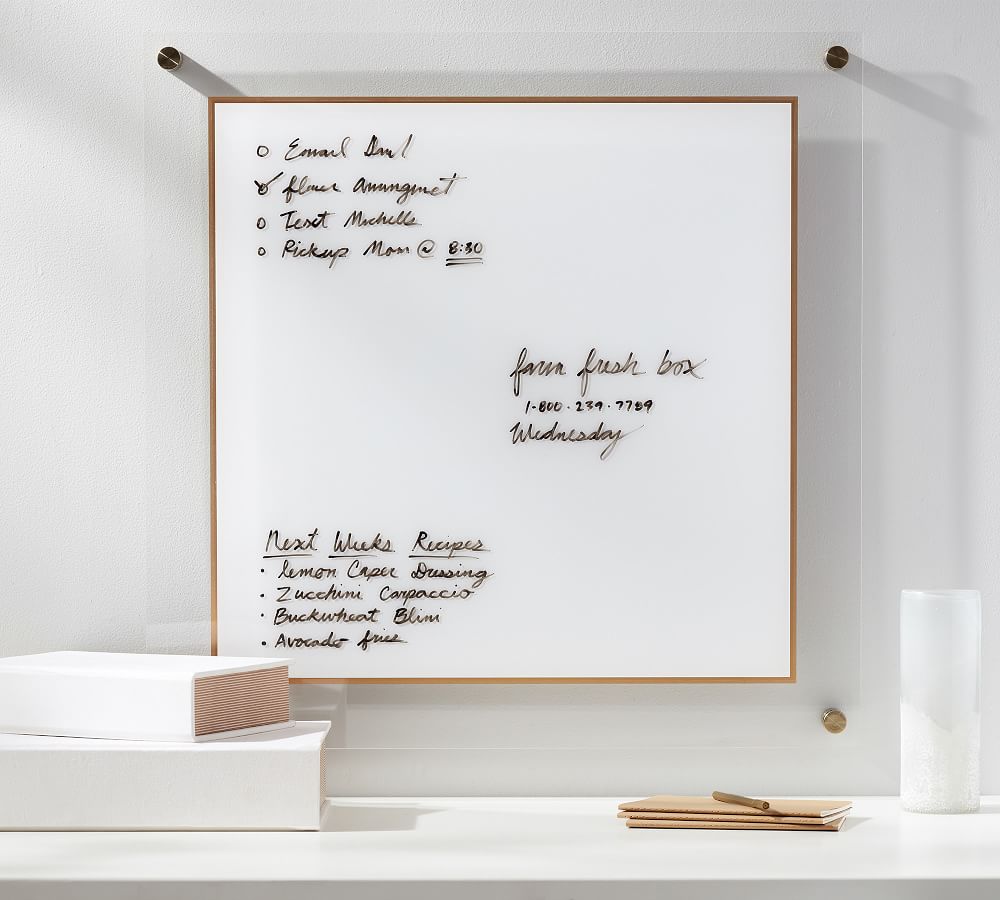 Email Paul
flower Arrangment
Text Michelle
Pickup Mom @ 8:30
farm fresh box
1-800-239-7789
Wednesday
Next Weeks Recipes
• lemon Caper Dressing
• Zucchini Carpaccio
• Buckwheat Blini
• Avocado fries